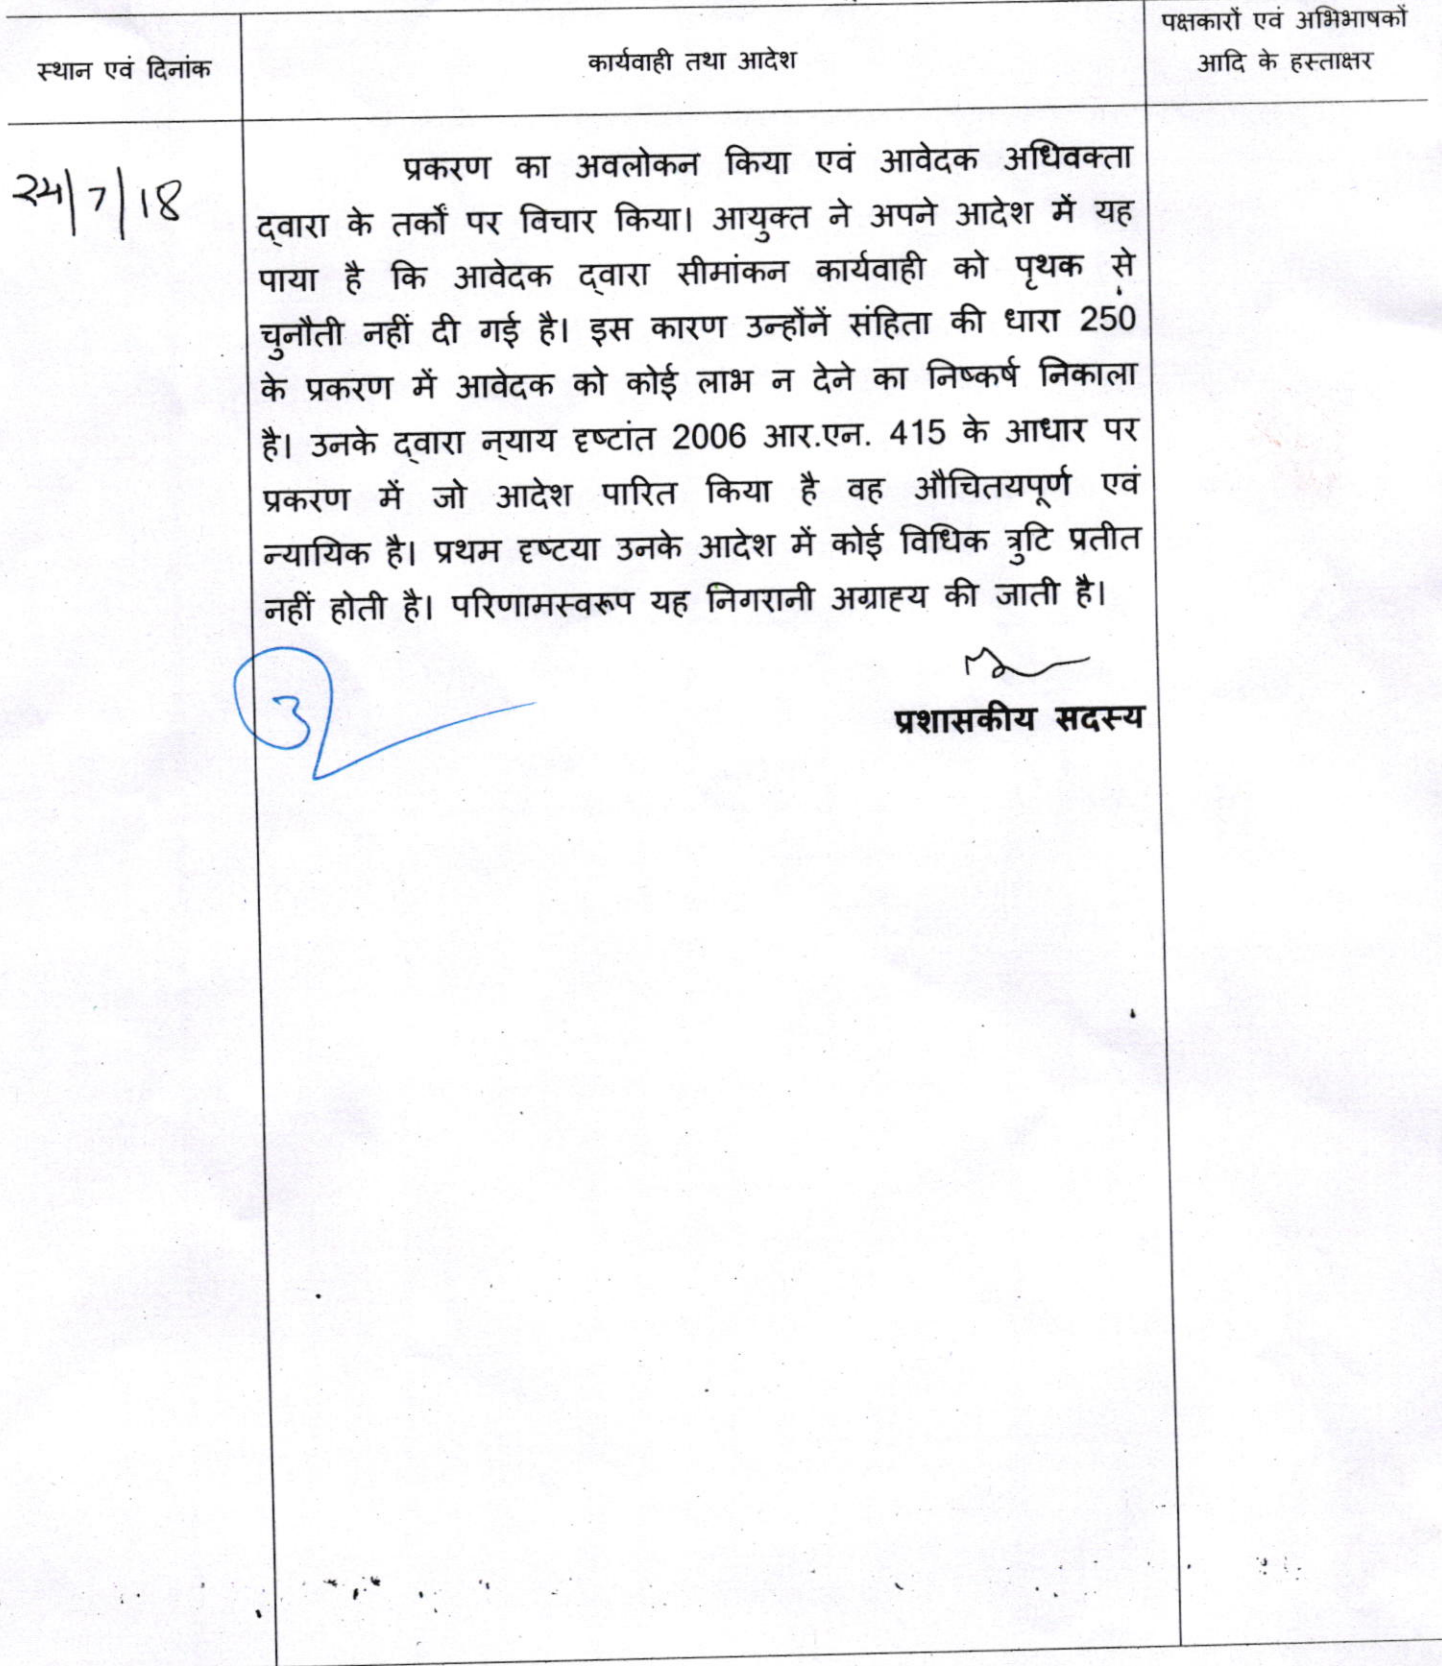 स्थान एवं दिनांक
कार्यवाही तथा आदेश
पक्षकारों एवं अभिभाषकों
आदि के हस्ताक्षर
24/7/18
प्रकरण का अवलोकन किया एवं आवेदक अधिवक्ता
द्वारा के तर्कों पर विचार किया। आयुक्त ने अपने आदेश में यह
पाया है कि आवेदक द्वारा सीमांकन कार्यवाही को पृथक से
चुनौती नहीं दी गई है। इस कारण उन्होंनें संहिता की धारा 250
के प्रकरण में आवेदक को कोई लाभ न देने का निष्कर्ष निकाला
है। उनके द्वारा न्याय दृष्टांत 2006 आर.एन. 415 के आधार पर
प्रकरण में जो आदेश पारित किया है वह औचितयपूर्ण एवं
न्यायिक है। प्रथम दृष्टया उनके आदेश में कोई विधिक त्रुटि प्रतीत
नहीं होती है। परिणामस्वरूप यह निगरानी अग्राह्य की जाती है।
प्रशासकीय सदस्य